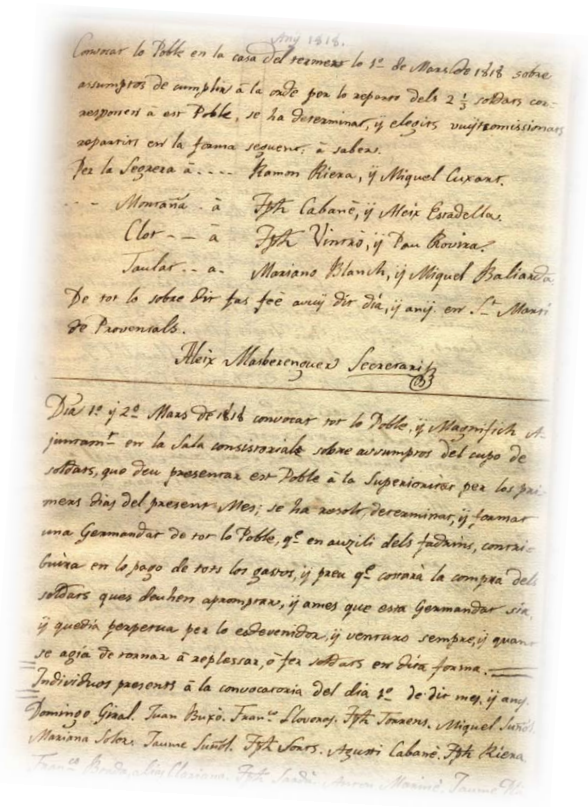 Any 1818.
Convocat lo Poble en la casa del terment lo 1º de Mars de 1818 sobre
assumptos de cumplir à la orde per lo reparto dels 2 1/2 soldats cor-
responens à est Poble, se ha determinat, ÿ elegits vuÿt comissionats
repartits en la forma seguent: à saber.
Per la Segrera à . - - - Ramon Riera, ÿ Miquel Cuxart.
- - - Montaña . à Jph Cabanè, ÿ Aleix Estadella.
Clot - - à Jph Vintrò, ÿ Pau Rovira.
Taulat . . a . Mariano Blanch, ÿ Miquel Baliarda
De tot lo sobre dit fas feè avuÿ dit dia, ÿ anÿ. en St. Martì
de Provensals.
Aleix Masberenguer Secretari
Dia 1º ÿ 2º Mars de 1818 convocat tot lo Poble, ÿ Magnifich A-
juntamt. en la Sala consistoriale sobre assumptos del cupo de
soldats, que deu presentar est Poble à la Superioritat per los pri-
mers dias del present Mes; se ha resolt, determinat, ÿ format
una Germandat de tot lo Poble, qe. en auzili dels fadrins, contri-
buira en lo pago de tots los gastos, ÿ preu qe. costarà la compra dels
soldats ques deuhen aprомptar, ÿ ames que esta Germandat sia,
ÿ quedia perpetua per lo esdevenidor, ÿ venturo sempre, ÿ quant
se agia de tornar à replessar, ò fer soldats en dita forma.
Individuos presents à la convocatoria del dia 1º de dit mes, ÿ anÿ.
Domingo Giral. Juan Buxò. Franco. Lloveras. Jph Torrens. Miquel Suñol.
Mariana Soler. Jaume Suñol. Jph Sorts. Agusti Cabanè. Jph Riera
Franco. Clariana. Jph Anton Jaume